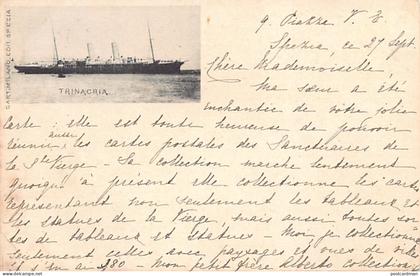 CARTI MILANO, EDIT. SPEZIA
TRINACRIA
9 Piazza V. E
Spezia, ce 27 Sept.
Chère Mademoiselle,
Ma sœur a été
enchantée de votre jolie
carte; elle est toute heureuse de pouvoir
réunir aussi les cartes postales des Sanctuaires de
la Ste Vierge - Sa collection marche lentement
quoique à présent elle collectionne les cartes
représentant non seulement les tableaux et
les statues de la Vierge, mais aussi toutes sor-
tes de tableaux et statues - Moi je collectionne
seulement celles avec paysages et vues de villes
380 Mon petit frère Alberto collectionne